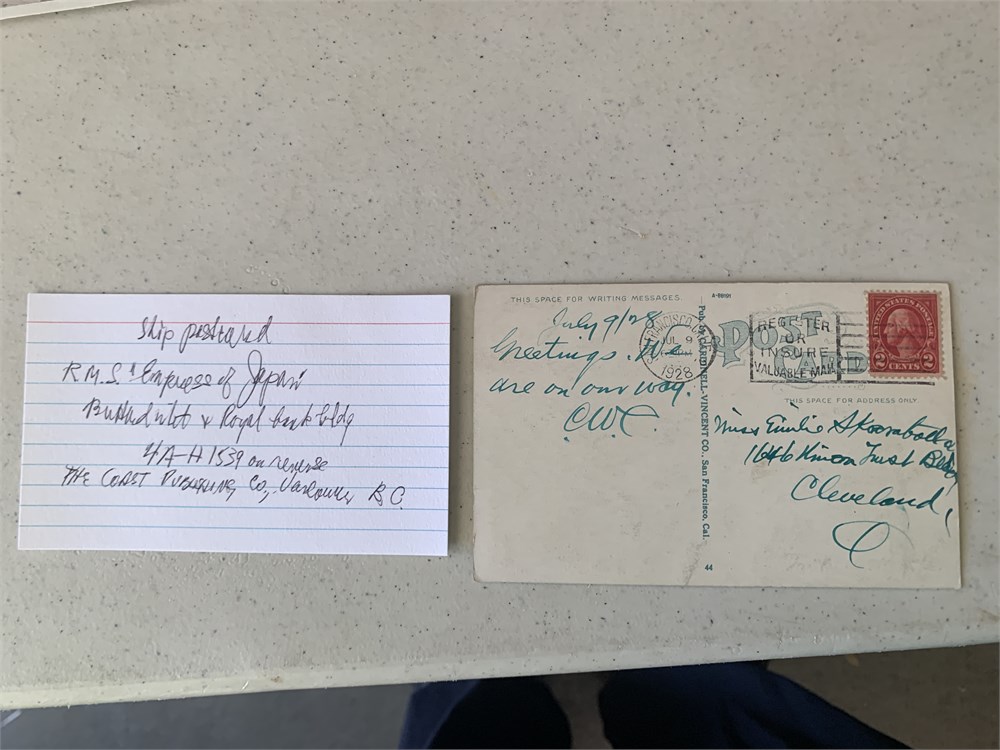 Ship postcard
R.M.S. "Empress of Japan"
& Royal bank bldg
4A-H 1539 on reverse
THE COAST PUBLISHING Co., Vancouver B.C.
THIS SPACE FOR WRITING MESSAGES
A-88191
July 9/28
Greetings. We
are on our way.
C.W.C.
Pub. by CARDINELL-VINCENT CO., San Francisco, Cal.
44
SAN FRANCISCO, CAL.
JUL 9
1928
POST CARD
REGISTER
OR
INSURE
VALUABLE MAIL
UNITED STATES POSTAGE
2 CENTS 2
THIS SPACE FOR ADDRESS ONLY
Miss Emilie
1646 Union Trust Bldg
Cleveland,
O